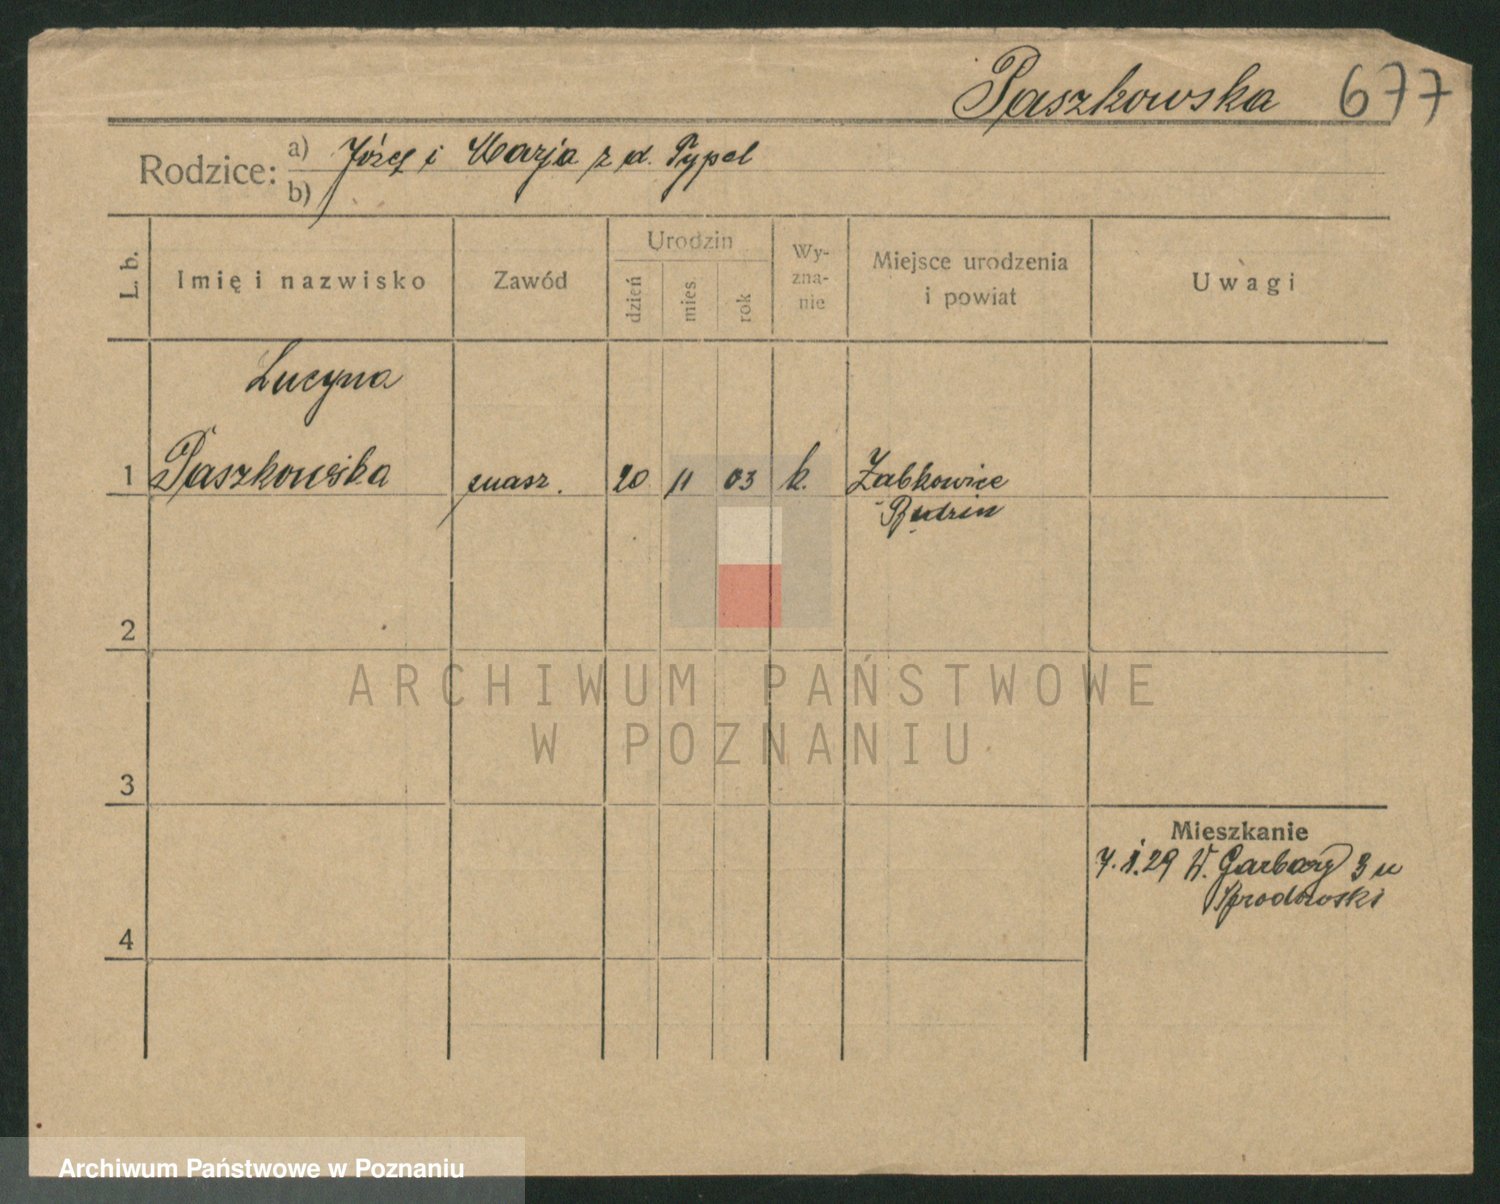 Paszkowska 677
Rodzice: a) Józef i Marja z d. Pypel
b)
L. b.
Imię i nazwisko
Zawód
Urodzin
dzień
mies.
rok
Wy-
zna-
nie
Miejsce urodzenia
i powiat
Uwagi
Lucyna
1 Paszkowska masz. 20 11 03 k. Ząbkowice
Będzin
2
3
4
Mieszkanie
7.1.29 W. Garbary 3 u
ARCHIWUM PAŃSTWOWE
W POZNANIU
Archiwum Państwowe w Poznaniu